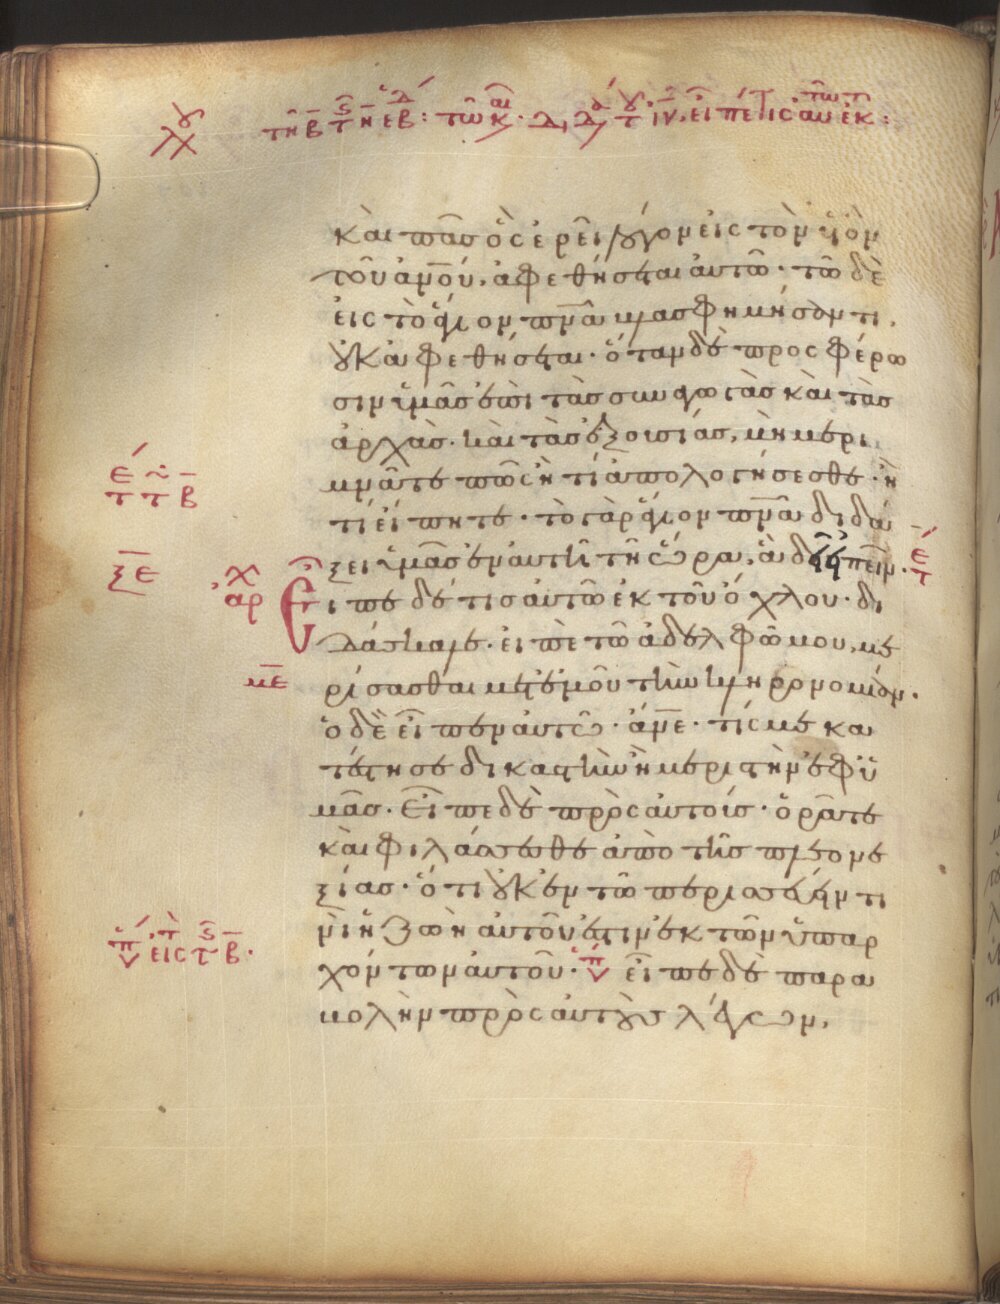 καὶ πᾶσ ὃς ἐρεῖ λόγον εἰς τὸν ὑὸν
τοῦ ἀνου, ἀφεθήσεται αὐτῶ· τῶ δὲ
εἰς τὸ ἅγιον πνα βλασφημήσαντι,
οὐκ ἀφεθήσεται· ὅταν δὲ προσφέρω
σιν ὑμᾶσ ἐπὶ τὰσ συναγωγὰσ καὶ τὰσ
ἀρχὰσ· καὶ τὰσ ἐξουσίασ, μὴ μερι
μνᾶτε πῶς ἢ τί ἀπολογήσεσθε· ἢ
τί εἴπητε· τὸ γὰρ ἅγιον πνα διδά
ξει ὑμᾶσ ἐν αὐτῆ τῆ ὥρα, ἃ δεῖ εἰπεῖν·
ξε
Εἶπε δέ τισ αὐτῶ ἐκ τοῦ ὄχλου· δι
δάσκαλε· εἰπὲ τῶ ἀδελφῶ μου, με
με
ρίσασθαι μετ' ἐμοῦ τὴν κληρονομίαν·
ὁ δὲ εἶπεν αὐτῶ· ἄνε· τίς με κα
τέστησε δικαστὴν ἢ μεριστὴν ἐφ' ὑ
μᾶσ· Εἶπε δὲ πρὸς αὐτούσ· ὁρᾶτε
καὶ φυλάσσεσθε ἀπὸ τῆσ πλεονε
ξίασ· ὅτι οὐκ ἐν τῶ περισσεύειν τι
νὶ ἡ ζωὴ αὐτοῦ ἐστιν ἐκ τῶν ὑπαρ
χόντων αὐτοῦ· εἶπε δὲ παρα
βολὴν πρὸς αὐτοὺσ λέγων,